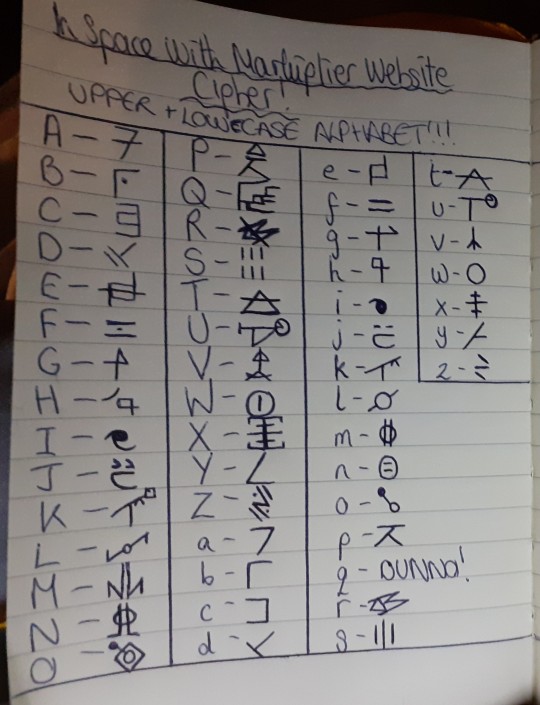 In Space With Markiplier Website
Cipher!
UPPER + LOWECASE ALPHABET!!!
A -
B -
C -
D -
E -
F -
G -
H -
I -
J -
K -
L -
M -
N -
O -
P -
Q -
R -
S -
T -
U -
V -
W -
X -
Y -
Z -
a -
b -
c -
d -
e -
f -
g -
h -
i -
j -
k -
l -
m -
n -
o -
p -
q - DUNNO!
r -
s -
t -
u -
v -
w -
x -
y -
z -